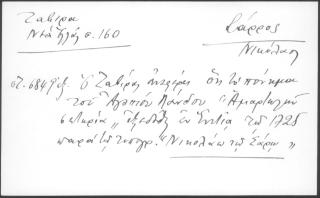 Ζαβίρα
Νέα Ἑλλάς σ. 160
Σάρρος
Νικόλαος
Ὁ Ζαβίρας ἀναφέρει ὅτι τὸ πόνημα
τοῦ Ἀγαπίου Λάνδου "Ἁμαρτωλῶν
σωτηρία" ἐξεδόθη ἐν Ἑνετίᾳ τῷ 1725
παρὰ τῷ τυπογρ. "Νικολάῳ τῷ Σάρῳ"